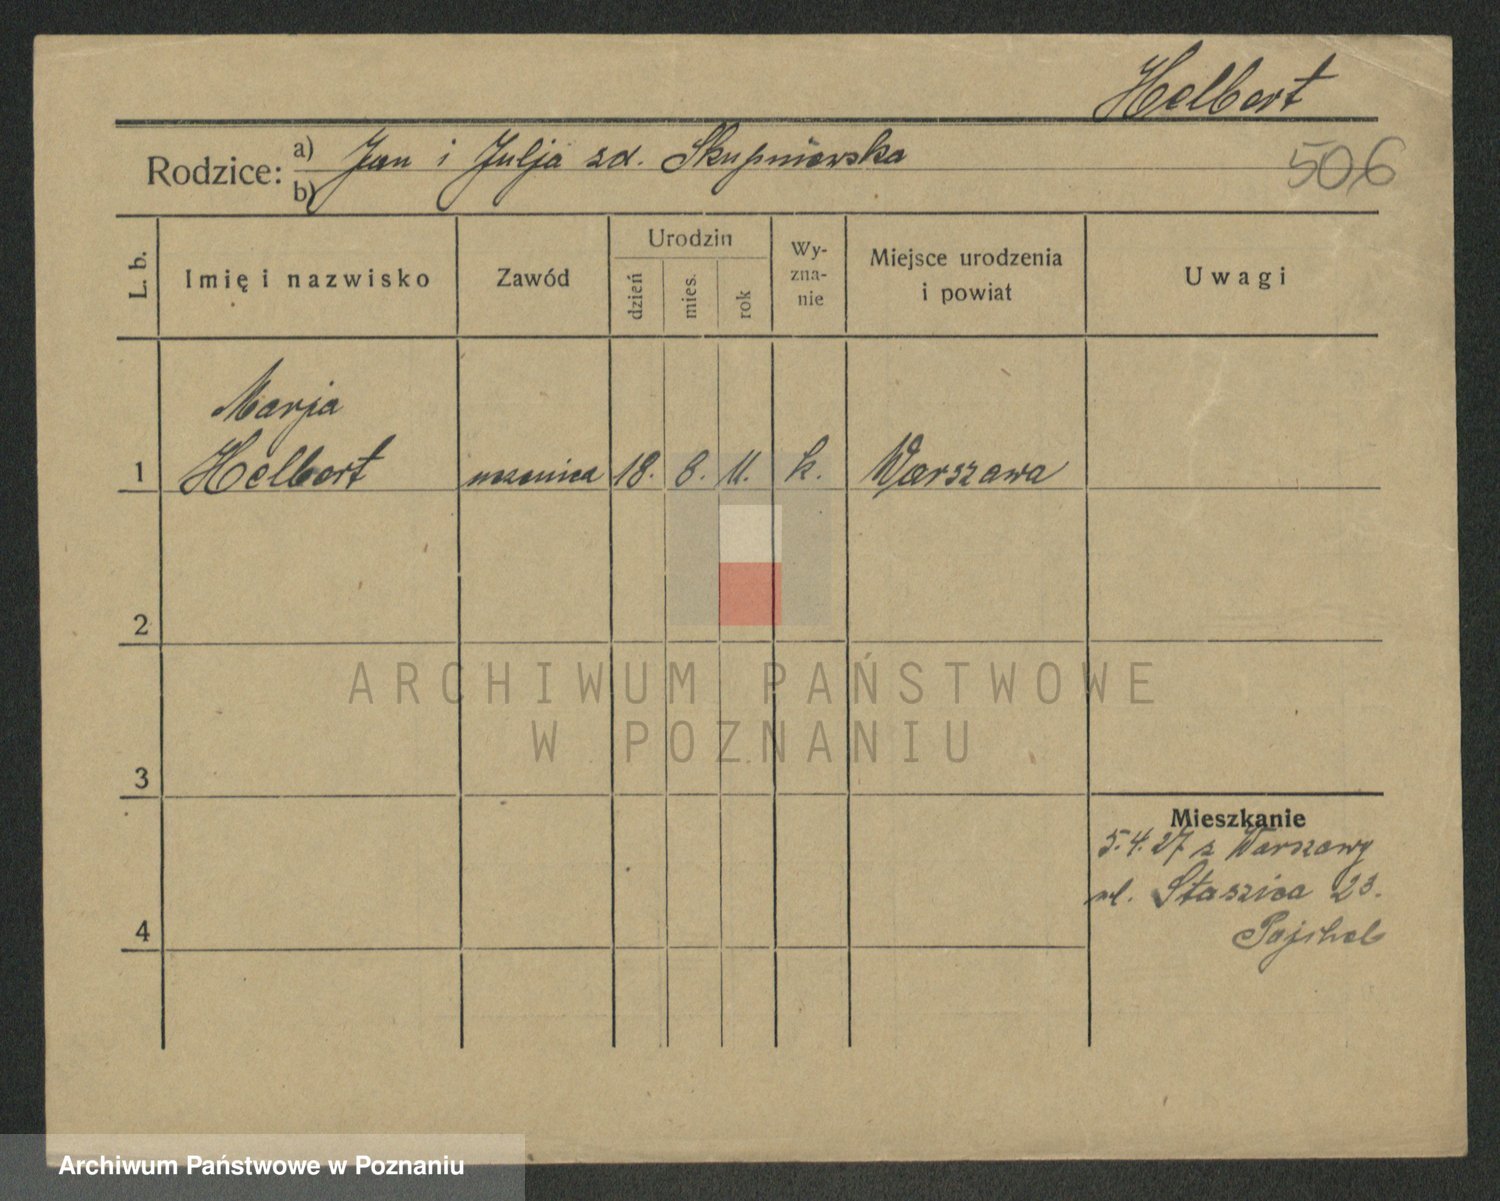 Helbert
Rodzice: a) Jan i Julja zd. Skupniewska
b)
506
L. b.
Imię i nazwisko
Zawód
Urodzin
dzień
mies.
rok
Wy-
zna-
nie
Miejsce urodzenia
i powiat
Uwagi
Marja
1 Helbert uczenica 18. 8. 11. k. Warszawa
2
ARCHIWUM PAŃSTWOWE
W POZNANIU
3
Mieszkanie
5.4.27 z Warszawy
ul. Staszica 23.
4
Archiwum Państwowe w Poznaniu